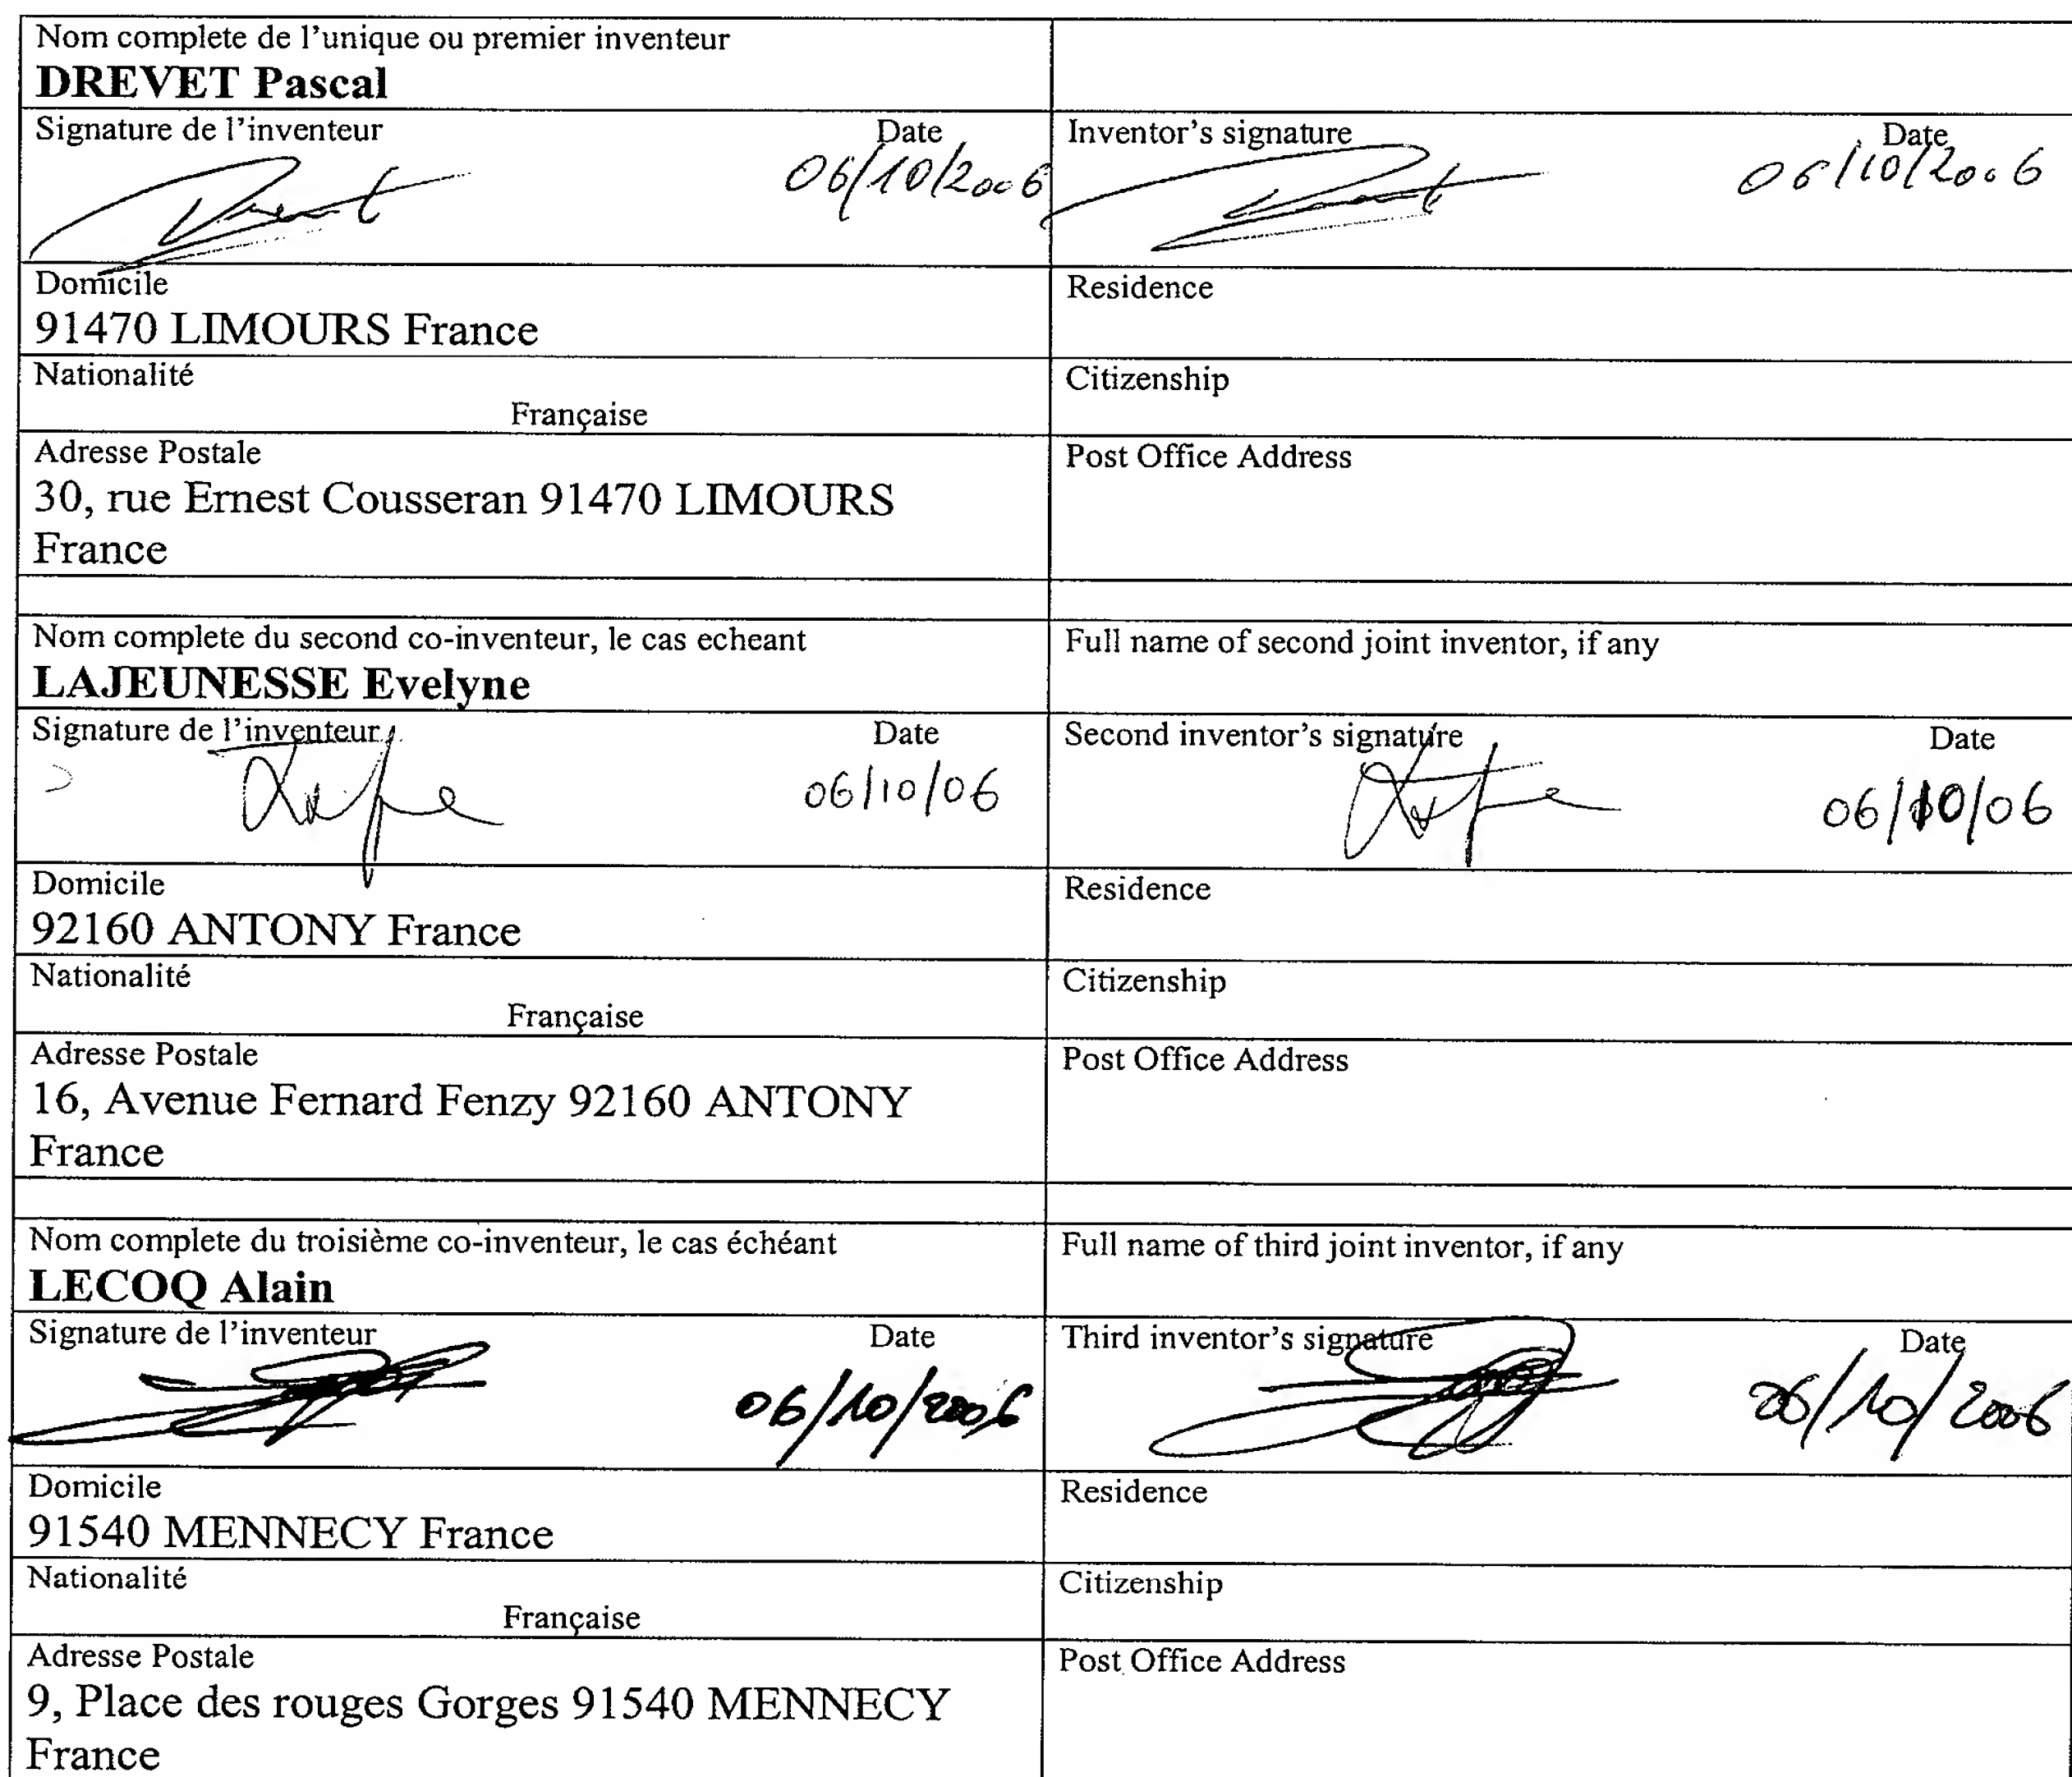 Nom complete de l'unique ou premier inventeur
DREVET Pascal
Signature de l'inventeur Date
06/10/2006
Inventor's signature Date
06/10/2006
Domicile
91470 LIMOURS France
Residence
Nationalité
Française
Citizenship
Adresse Postale
30, rue Ernest Cousseran 91470 LIMOURS
France
Post Office Address
Nom complete du second co-inventeur, le cas echeant
LAJEUNESSE Evelyne
Full name of second joint inventor, if any
Signature de l'inventeur Date
06/10/06
Second inventor's signature Date
06/10/06
Domicile
92160 ANTONY France
Residence
Nationalité
Française
Citizenship
Adresse Postale
16, Avenue Fernard Fenzy 92160 ANTONY
France
Post Office Address
Nom complete du troisième co-inventeur, le cas échéant
LECOQ Alain
Full name of third joint inventor, if any
Signature de l'inventeur Date
06/10/2006
Third inventor's signature Date
06/10/2006
Domicile
91540 MENNECY France
Residence
Nationalité
Française
Citizenship
Adresse Postale
9, Place des rouges Gorges 91540 MENNECY
France
Post Office Address